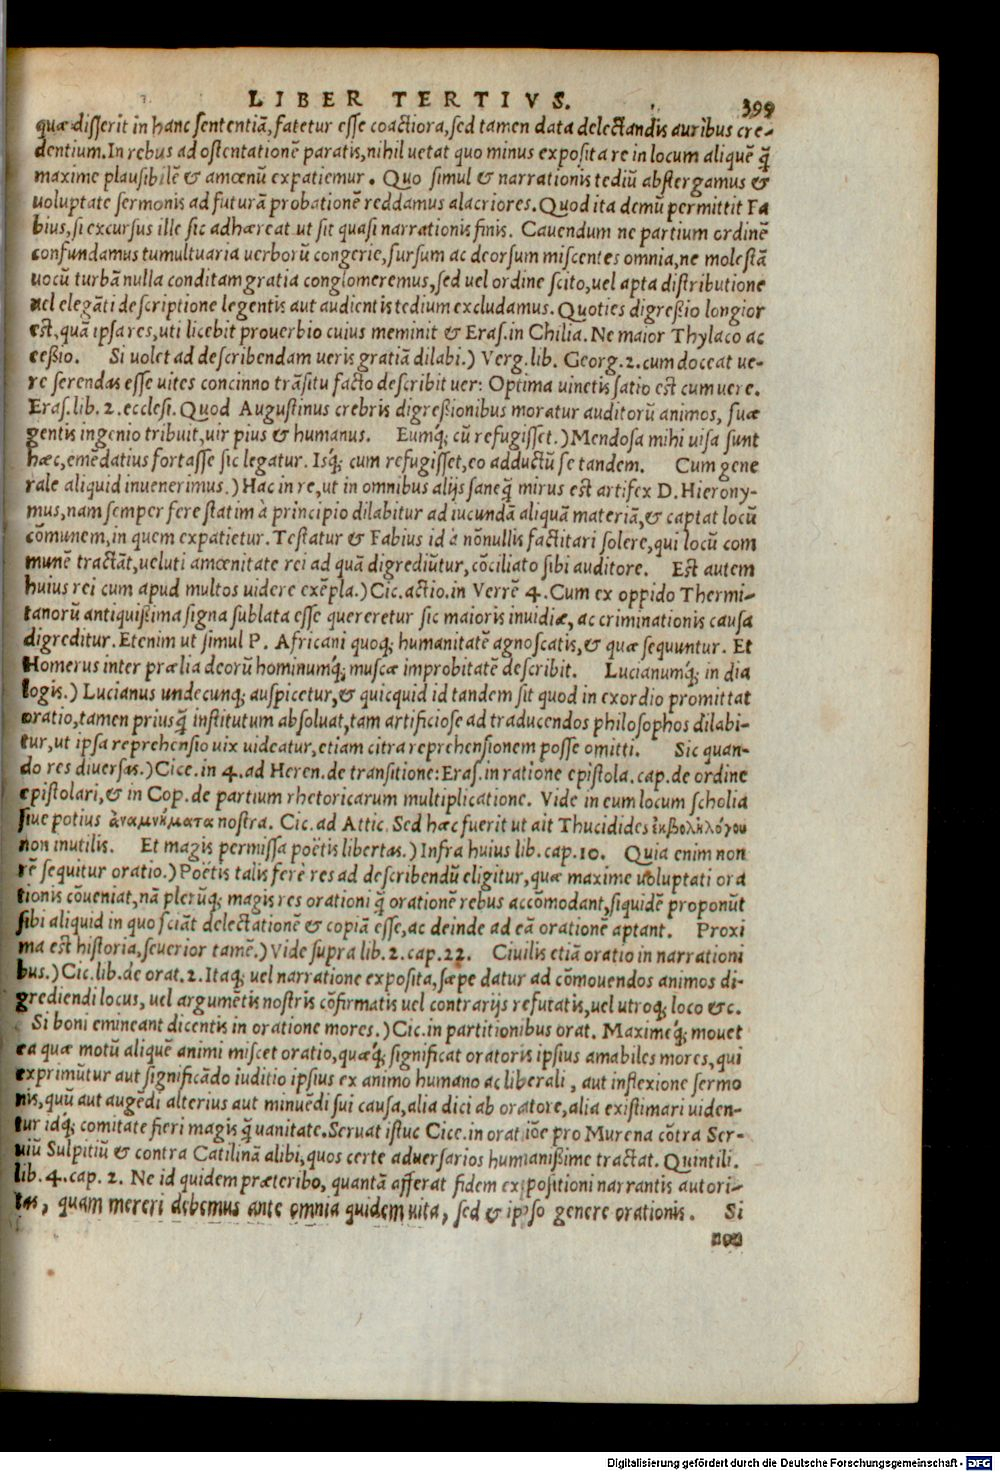 LIBER TERTIVS. 399
quæ disserit in hanc sententiã, fatetur esse coactiora, sed tamen data delectandis auribus cre-
dentium. In rebus ad ostentationẽ paratis, nihil uetat quo minus exposita re in locum aliquẽ q̃
maxime plausibilẽ & amœnũ expatiemur. Quo simul & narrationis tediũ abstergamus &
uoluptate sermonis ad futurã probationẽ reddamus alacriores. Quod ita demũ permittit Fa
bius, si excursus ille sic adhæreat ut sit quasi narrationis finis. Cauendum ne partium ordinẽ
confundamus tumultuaria uerborũ congerie, sursum ac deorsum miscentes omnia, ne molestã
uocũ turbã nulla conditam gratia conglomeremus, sed uel ordine scito, uel apta distributione
uel elegãti descriptione legentis aut audientis tedium excludamus. Quoties digreßio longior
est, quã ipsa res, uti licebit prouerbio cuius meminit & Eras. in Chilia. Ne maior Thylaco ac
ceßio. Si uolet ad describendam ueris gratiã dilabi.) Verg. lib. Georg. 2. cum doceat ue-
re serendas esse uites concinno trãsitu facto describit uer: Optima uinetis satio est cum uere.
Eras. lib. 2. ecclesi. Quod Augustinus crebris digreßionibus moratur auditorũ animos, suæ
gentis ingenio tribuit, uir pius & humanus. Eumq́; cũ refugisset.) Mendosa mihi uisa sunt
hæc, emẽdatius fortasse sic legatur. Isq́; cum refugisset, eo adductũ se tandem. Cum gene
rale aliquid inuenerimus.) Hac in re, ut in omnibus alijs sane q̃ mirus est artifex D. Hierony-
mus, nam semper fere statim à principio dilabitur ad iucundã aliquã materiã, & captat locũ
cõmunem, in quem expatietur. Testatur & Fabius id à nõnullis factitari solere, qui locũ com
munẽ tractãt, ueluti amœnitate rei ad quã digrediũtur, cõciliato sibi auditore. Est autem
huius rei cum apud multos uidere exẽpla.) Cic. actio. in Verrẽ 4. Cum ex oppido Thermi-
tanorũ antiquißima signa sublata esse quereretur sic maioris inuidiæ, ac criminationis causa
digreditur. Etenim ut simul P. Africani quoq; humanitatẽ agnoscatis, & quæ sequuntur. Et
Homerus inter prælia deorũ hominumq́; muscæ improbitatẽ describit. Lucianumq́; in dia
logis.) Lucianus undecunq; auspicetur, & quicquid id tandem sit quod in exordio promittat
oratio, tamen prius q̃ institutum absoluat, tam artificiose ad traducendos philosophos dilabi-
tur, ut ipsa reprehensio uix uideatur, etiam citra reprehensionem posse omitti. Sic quan-
do res diuersas.) Cice. in 4. ad Heren. de transitione: Eras. in ratione epistola. cap. de ordine
epistolari, & in Cop. de partium rhetoricarum multiplicatione. Vide in eum locum scholia
siue potius ἀναμνήματα nostra. Cic. ad Attic. Sed hæc fuerit ut ait Thucidides ἐκβολὴ λόγου
non inutilis. Et magis permissa poëtis libertas.) Infra huius lib. cap. 10. Quia enim non
rẽ sequitur oratio.) Poëtis talis fere res ad describendũ eligitur, quæ maxime uoluptati ora
tionis cõueniat, nã plerũq; magis res orationi q̃ orationẽ rebus accõmodant, siquidẽ proponũt
sibi aliquid in quo sciãt delectationẽ & copiã esse, ac deinde ad eã oratione aptant. Proxi
ma est historia, seuerior tamẽ.) Vide supra lib. 2. cap. 22. Ciuilis etiã oratio in narrationi
bus.) Cic. lib. de orat. 2. Itaq; uel narratione exposita, sæpe datur ad cõmouendos animos di-
grediendi locus, uel argumẽtis nostris cõfirmatis uel contrarijs refutatis, uel utroq; loco &c.
Si boni emineant dicentis in oratione mores.) Cic. in partitionibus orat. Maximeq́; mouet
ea quæ motũ aliquẽ animi miscet oratio, quæq́; significat oratoris ipsius amabiles mores, qui
exprimũtur aut significãdo iuditio ipsius ex animo humano ac liberali, aut inflexione sermo
nis, quũ aut augẽdi alterius aut minuẽdi sui causa, alia dici ab oratore, alia existimari uiden-
tur idq́; comitate fieri magis q̃ uanitate. Seruat istuc Cice. in oratiõe pro Murena cõtra Ser-
uiũ Sulpitiũ & contra Catilinã alibi, quos certe aduersarios humanißime tractat. Quintili.
lib. 4. cap. 2. Ne id quidem præteribo, quantã afferat fidem expositioni narrantis autori-
tas, quam mereri debemus ante omnia quidem uita, sed & ipso genere orationis. Si
non
Digitalisierung gefördert durch die Deutsche Forschungsgemeinschaft - DFG